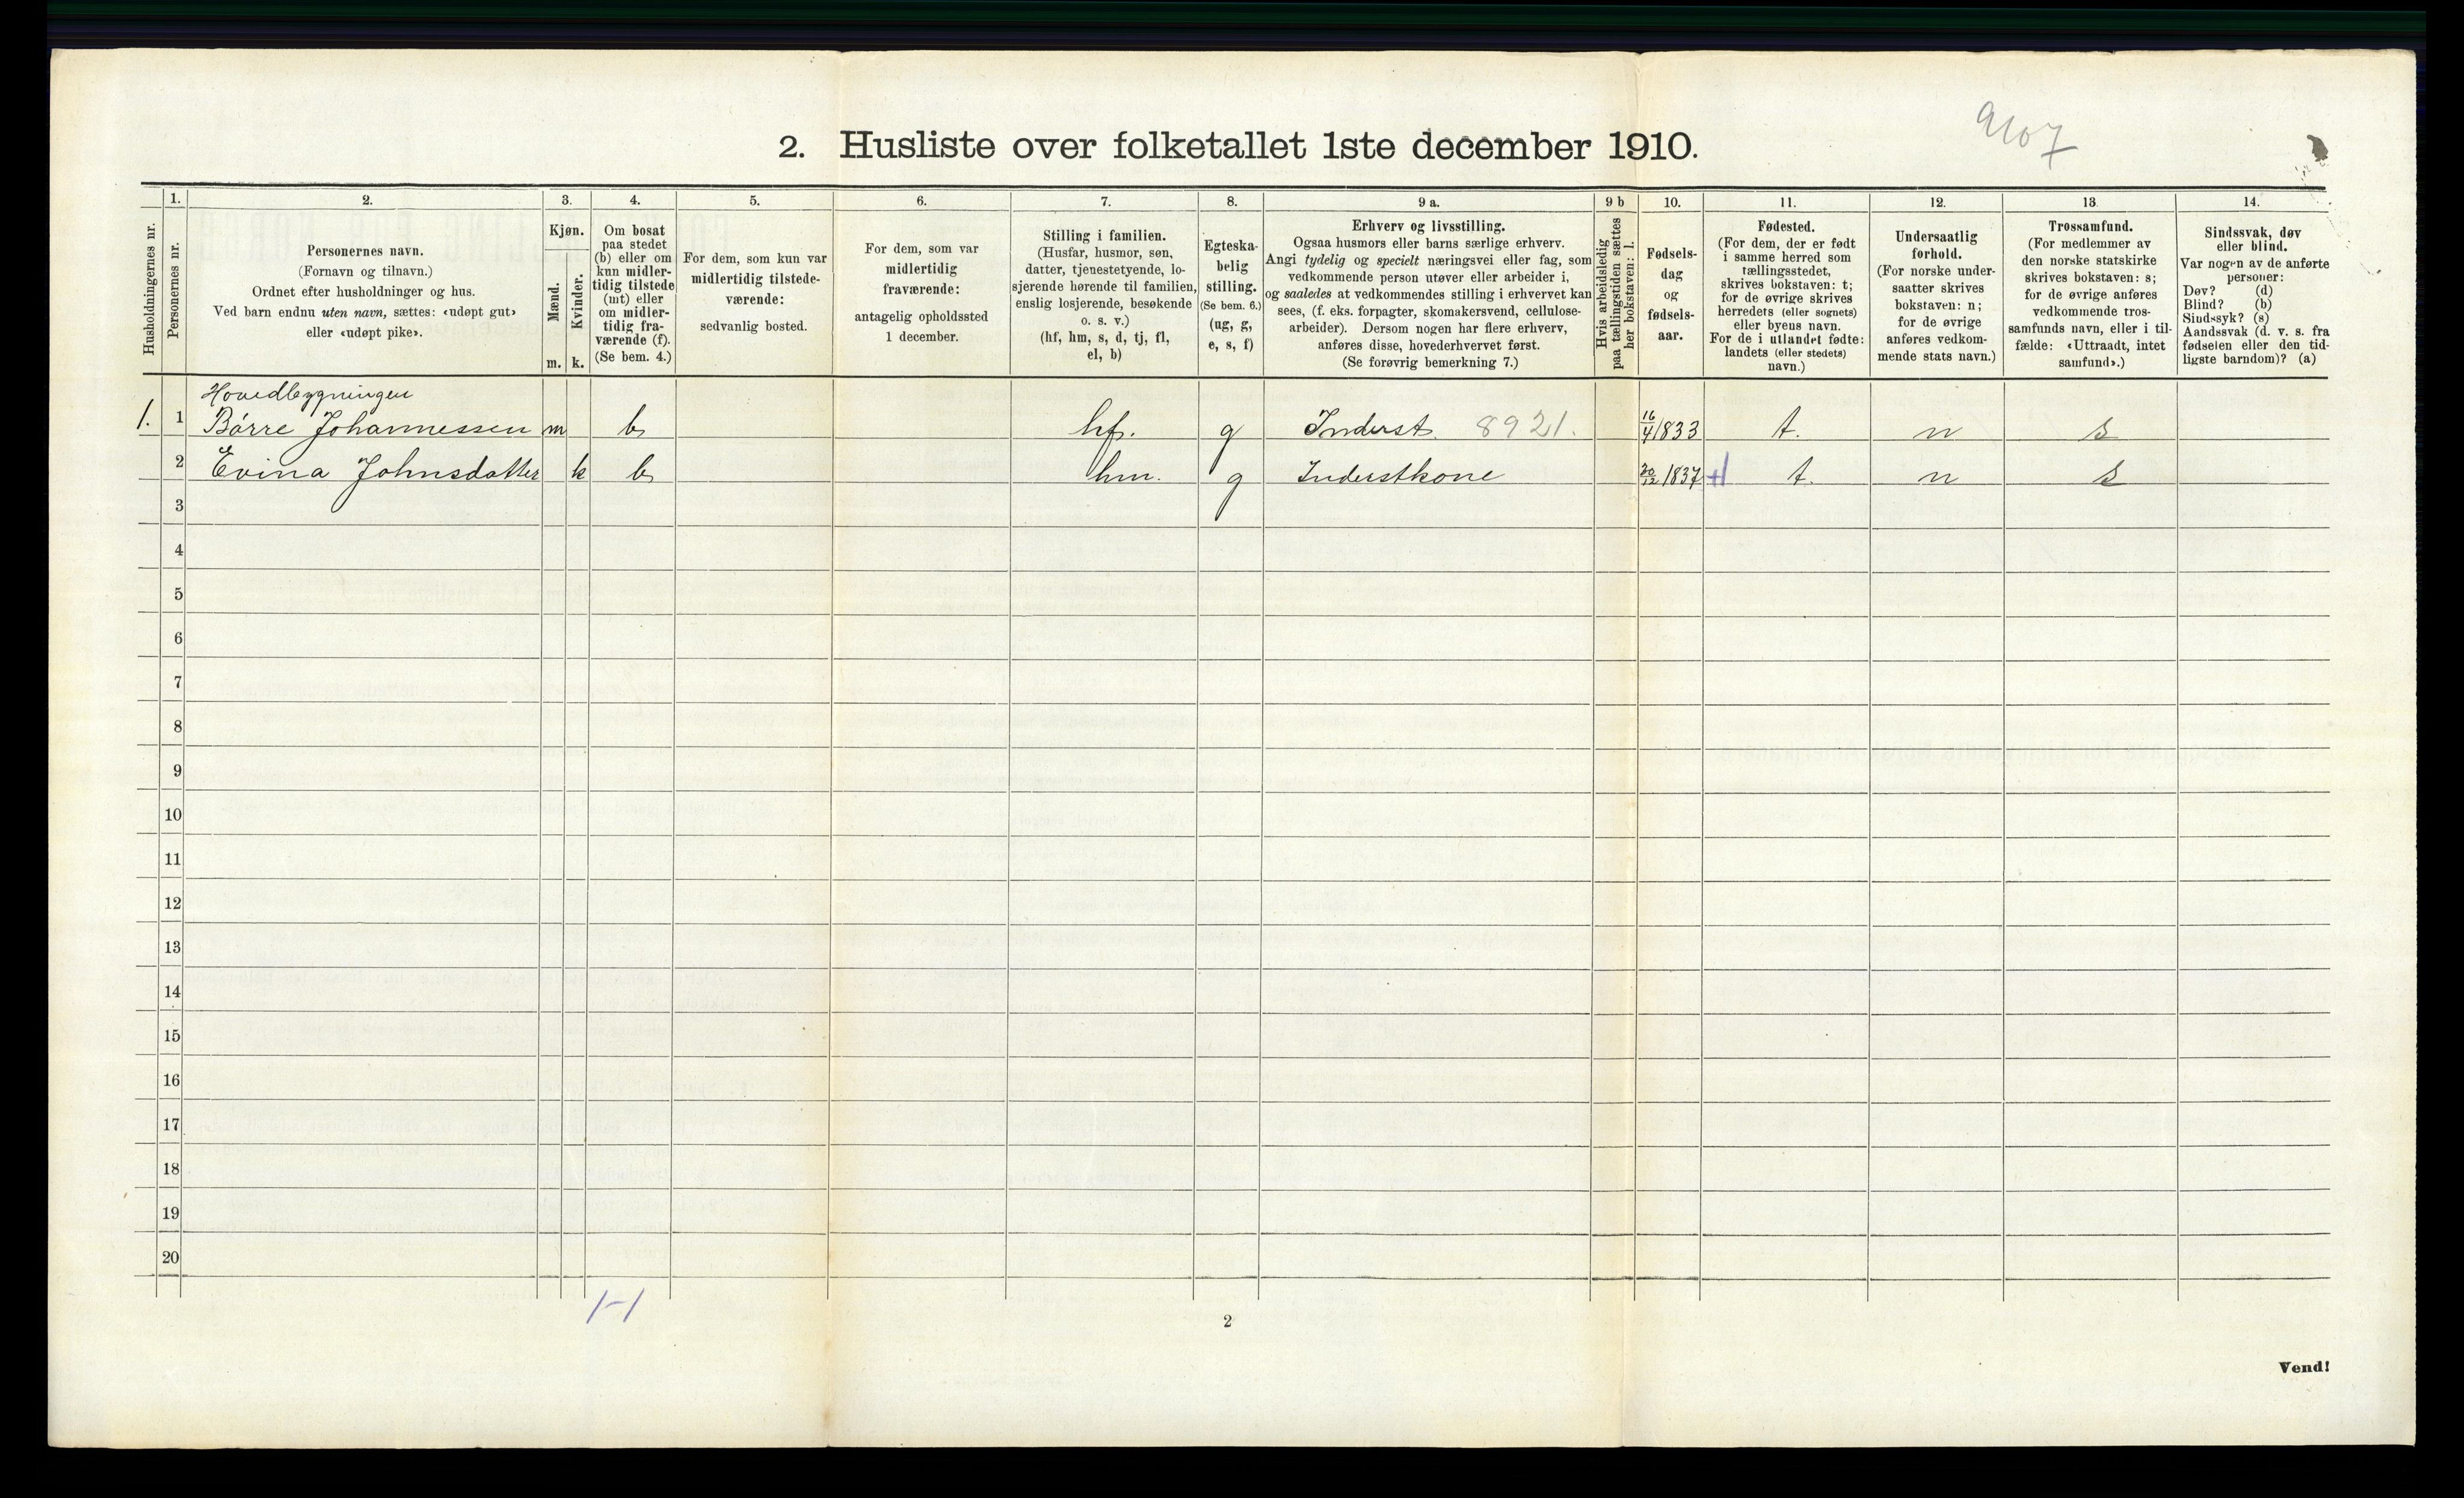 9107
2. Husliste over folketallet 1ste december 1910.
Husholdningernes nr.
1.
Personernes nr.
2.
Personernes navn.
(Fornavn og tilnavn.)
Ordnet efter husholdninger og hus.
Ved barn endnu uten navn, sættes: «udøpt gut»
eller «udøpt pike».
3.
Kjøn.
Mænd.
Kvinder.
m.
k.
4.
Om bosat
paa stedet
(b) eller om
kun midler-
tidig tilstede
(mt) eller
om midler-
tidig fra-
værende (f).
(Se bem. 4.)
5.
For dem, som kun var
midlertidig tilstede-
værende:
sedvanlig bosted.
6.
For dem, som var
midlertidig
fraværende:
antagelig opholdssted
1 december.
7.
Stilling i familien.
(Husfar, husmor, søn,
datter, tjenestetyende, lo-
sjerende hørende til familien,
enslig losjerende, besøkende
o. s. v.)
(hf, hm, s, d, tj, fl,
el, b)
8.
Egteska-
belig
stilling.
(Se bem. 6.)
(ug, g,
e, s, f)
9 a.
Erhverv og livsstilling.
Ogsaa husmors eller barns særlige erhverv.
Angi tydelig og specielt næringsvei eller fag, som
vedkommende person utøver eller arbeider i,
og saaledes at vedkommendes stilling i erhvervet kan
sees, (f. eks. forpagter, skomakersvend, cellulose-
arbeider). Dersom nogen har flere erhverv,
anføres disse, hovederhvervet først.
(Se forøvrig bemerkning 7.)
9 b
Hvis arbeidsledig
paa tællingstiden sættes
her bokstaven: l.
10.
Fødsels-
dag
og
fødsels-
aar.
11.
Fødested.
(For dem, der er født
i samme herred som
tællingsstedet,
skrives bokstaven: t;
for de øvrige skrives
herredets (eller sognets)
eller byens navn.
For de i utlandet fødte:
landets (eller stedets)
navn.)
12.
Undersaatlig
forhold.
(For norske under-
saatter skrives
bokstaven: n;
for de øvrige
anføres vedkom-
mende stats navn.)
13
Trossamfund.
(For medlemmer av
den norske statskirke
skrives bokstaven: s;
for de øvrige anføres
vedkommende tros-
samfunds navn, eller i til-
fælde: «Uttraadt, intet
samfund».)
14.
Sindssvak, døv
eller blind.
Var nogen av de anførte
personer:
Døv? (d)
Blind? (b)
Sindssyk? (s)
Aandssvak (d. v. s. fra
fødselen eller den tid-
ligste barndom)? (a)
Hovedbygningen
1. 1 Børre Johannessen m b hf. g Inderst. 8921. 16/4 1833 t. n s
2 Evina Johnsdatter k b hm. g Inderstkone 20/12 1837 t. n s
3
4
5
6
7
8
9
10
11
12
13
14
15
16
17
18
19
20
1-1
2
Vend!